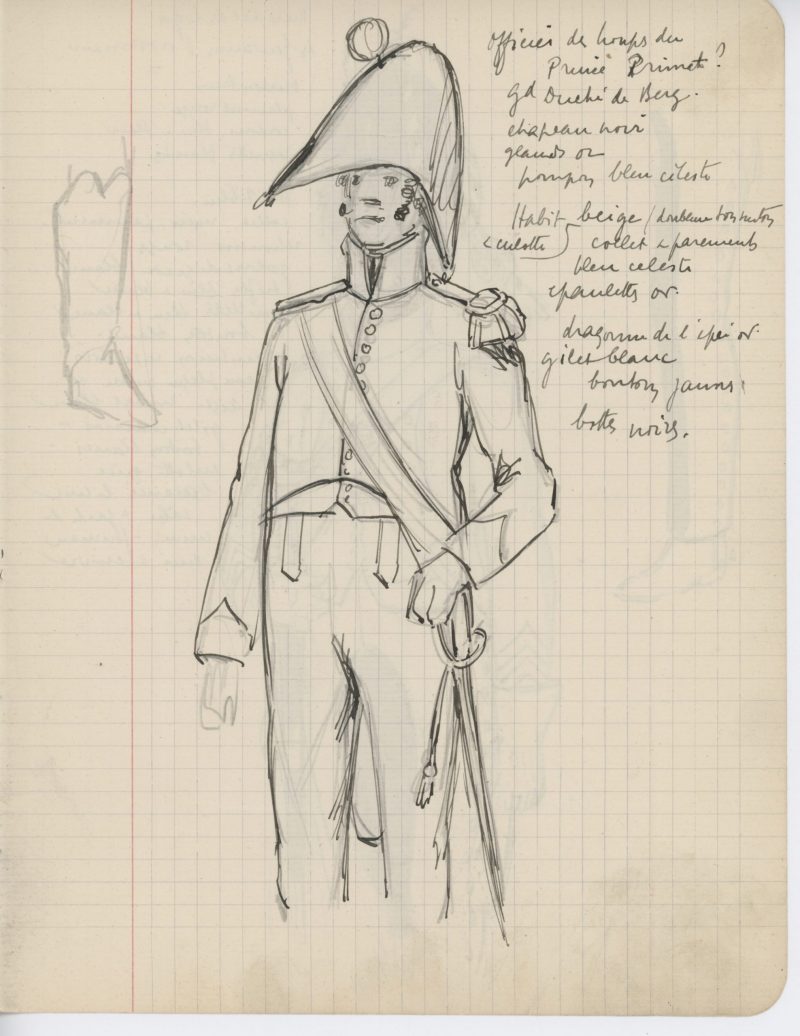 Officier de troups du
Prince Primat?
gd Duché de Berg.
chapeau noir
glands or
pompon bleu céleste
Habit beige (doublure ton
& culotte) collet & parements
bleu celeste
epaulettes or.
dragonne de l'epée or.
gilet blanc
boutons jaunes
bottes noires.